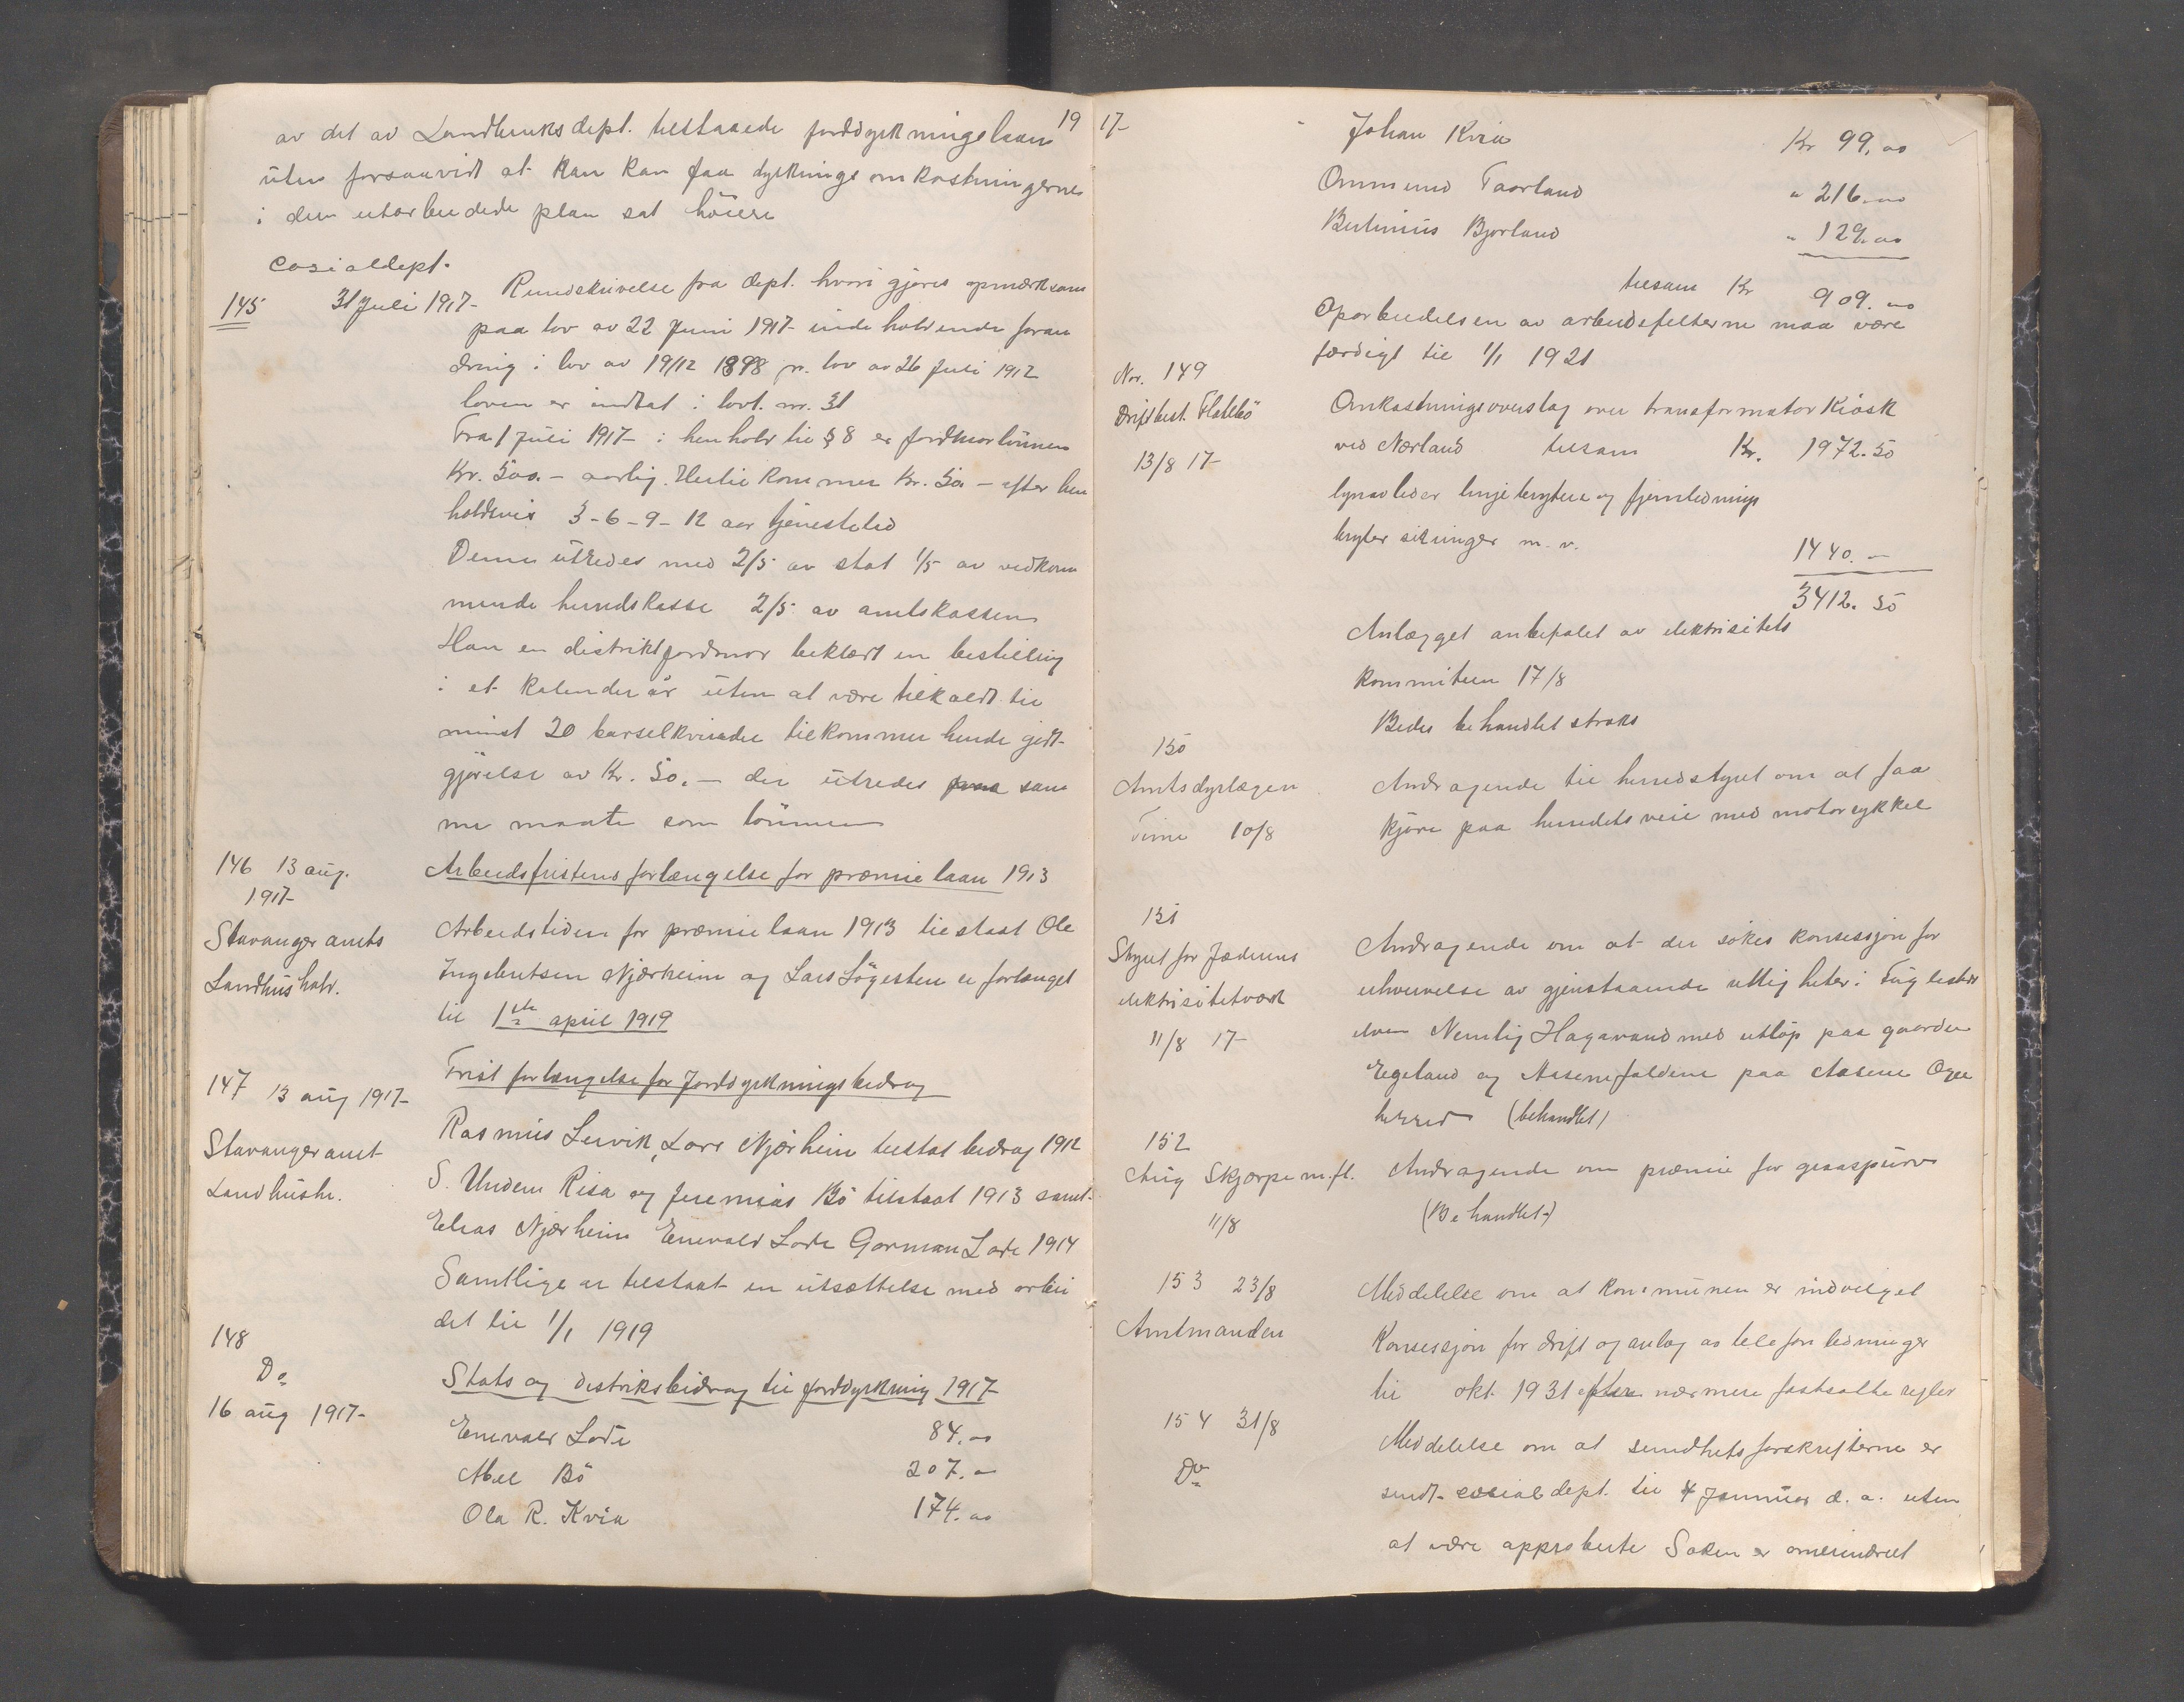 1917-
av det av Landbruksdept. tilstaaede jorddyrkningslaan
uten forsaavidt at kan kan faa dyrknings omkostningerne
i den utarbeidede plan sat höiere
Cosialdept.
145 31 Juli 1917- Rundskrivelse fra dept. hvori gjöres opmerksom
paa lov av 22 Juni 1917- inde holdende foran
dring i lov av 19/12 1898 jr. lov av 26 Juli 1912
loven er indtat i lovt. nr. 31
Fra 1 Juli 1917- i henhold til § 8 er jordmorlönnen
Kr. 500.- aarlig. Hertil kommer Kr. 50 - efter hen
holdsvis 3-6-9-12 aar tjenestetid
Denne utredes med 2/5 av stat 1/5 av vedkom
mende herredskasse 2/5 av amtskassen
Har en distriktjordmor beklædt en bestilling
i et kalender år uten at være tilkaldt til
minst 20 barselkvinder tilkommer hende godt-
gjörelse av Kr. 50.- der utredes paa sam
me maate som lönnen
146 13 aug.
1917-
Stavanger amts
Landhushold.
Arbeidsfristens forlængelse for præmielaan 1913
Arbeidstiden for præmielaan 1913 tilstaat Ole
Ingebretsen Njærheim og Lars Lögesten er forlænget
til 1ste april 1919
147 13 aug 1917-
Stavanger amt
Landhush.
Frist forlængelse for Jorddyrkningsbidrag
Rasmus Lervik, Lars Njærheim tilstat bidrag 1912
S. Undem Risa og Jeremias Bö tilstaat 1913 samt
Elias Njærheim Enevald Lode Gorman Lode 1914
Samtlige er tilstaat en utsættelse med arbei
det til 1/1 1919
148
Do
16 aug 1917-
Stats og distriksbidrag til jorddyrkning 1917-
Enevald Lode 84.00
Abel Bö 207.00
Ola R. Kvia 174.00
Johan Kvia Kr 99.00
Ommund Taarland " 216.00
Bertinius Bjorland " 129.00
tilsam Kr 909.00
Oparbeidelsen av arbeidsfelterne maa være
færdigt til 1/1 1921
Nr. 149
Driftbest. Flatebö
13/8 17-
Omkostningsoverslag over transformator Kiosk
ved Nærland tilsam Kr. 1972.50
lynavleder linjebrytere og fjernlednings
bryter sikringer m. v. 1440.-
3412.50
Anlægget anbefalet av elektrisitets
kommiteen 17/8
Bedes behandlet straks
150
Amtsdyrlægen
Time 10/8
Andragende til herredstyret om at faa
kjöre paa herredets veie med motorsykkel
151
Styret for Jæderens
elektrisitetverk
11/8 17-
Andragende om at der sökes konsessjon for
erhvervelse av gjenstaaende rettigheter i Fuglestad
elven Nemlig Hagavand med utlöp paa gaarden
Egeland og Aasenefaldene paa Aasene Ogne
herred (behandlet)
152
Aug Skjærpe m.fl.
11/8
Andragende om præmie for graaspurv
(Behandlet)
153 23/8
Amtmanden
Meddelelse om at kommunen er indvilget
Konsessjon for drift og anlæg av telefon ledninger
til okt. 1931 efter nærmere fastsatte regler
154 31/8
Do
Meddelelse om at sundhets forskrifterne er
sendt socialdept. til 4 Januar d. a. uten
at være approberte Saken er omerindret